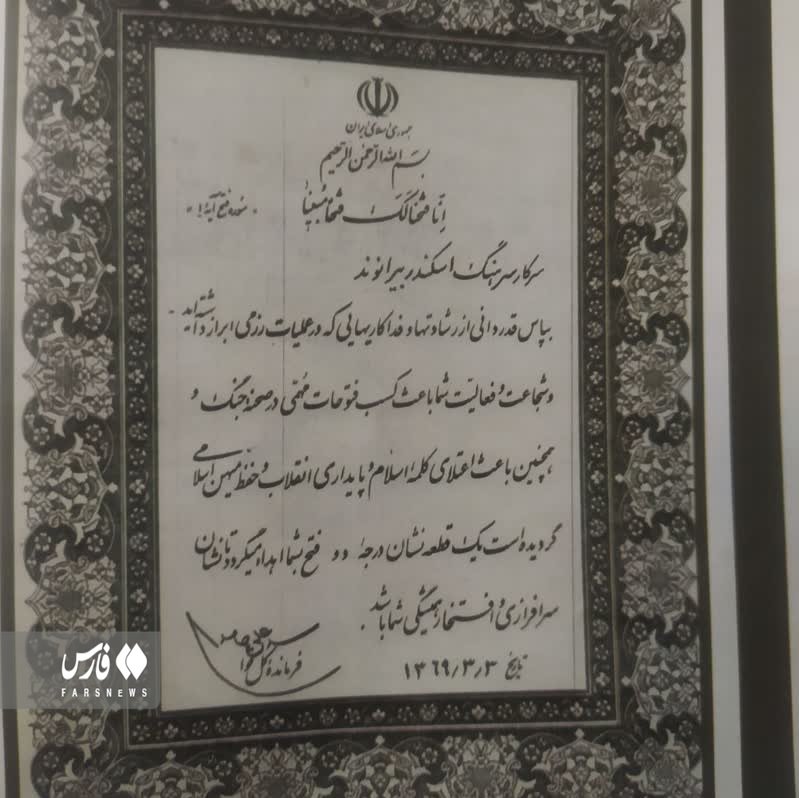 جمهوری اسلامی ایران
بسم الله الرحمن الرحیم
اِنّا فَتَحنا لَکَ فَتحاً مُبیناً « سوره فتح آیه ۱ »
سرکار سرهنگ اسکندر بیرانوند
بپاس قدردانی از رشادتها و فداکاریهائی که در عملیات رزمی ابراز داشته‌اید -
و شجاعت و فعالیت شما باعث کسب فتوحات مهمّی در صحنه جنگ و
همچنین باعث اعتلای کلمه اسلام و پایداری انقلاب و حفظ میهن اسلامی
گردیده است یک قطعه نشان درجه دو فتح بشما اهداء میگردد تا نشان
سرافرازی و افتخار همیشگی شما باشد .
تاریخ ۱۳۶۹/۳/۳
فرمانده کل قوا
سید علی خامنه‌ای
فارس
FARSNEWS